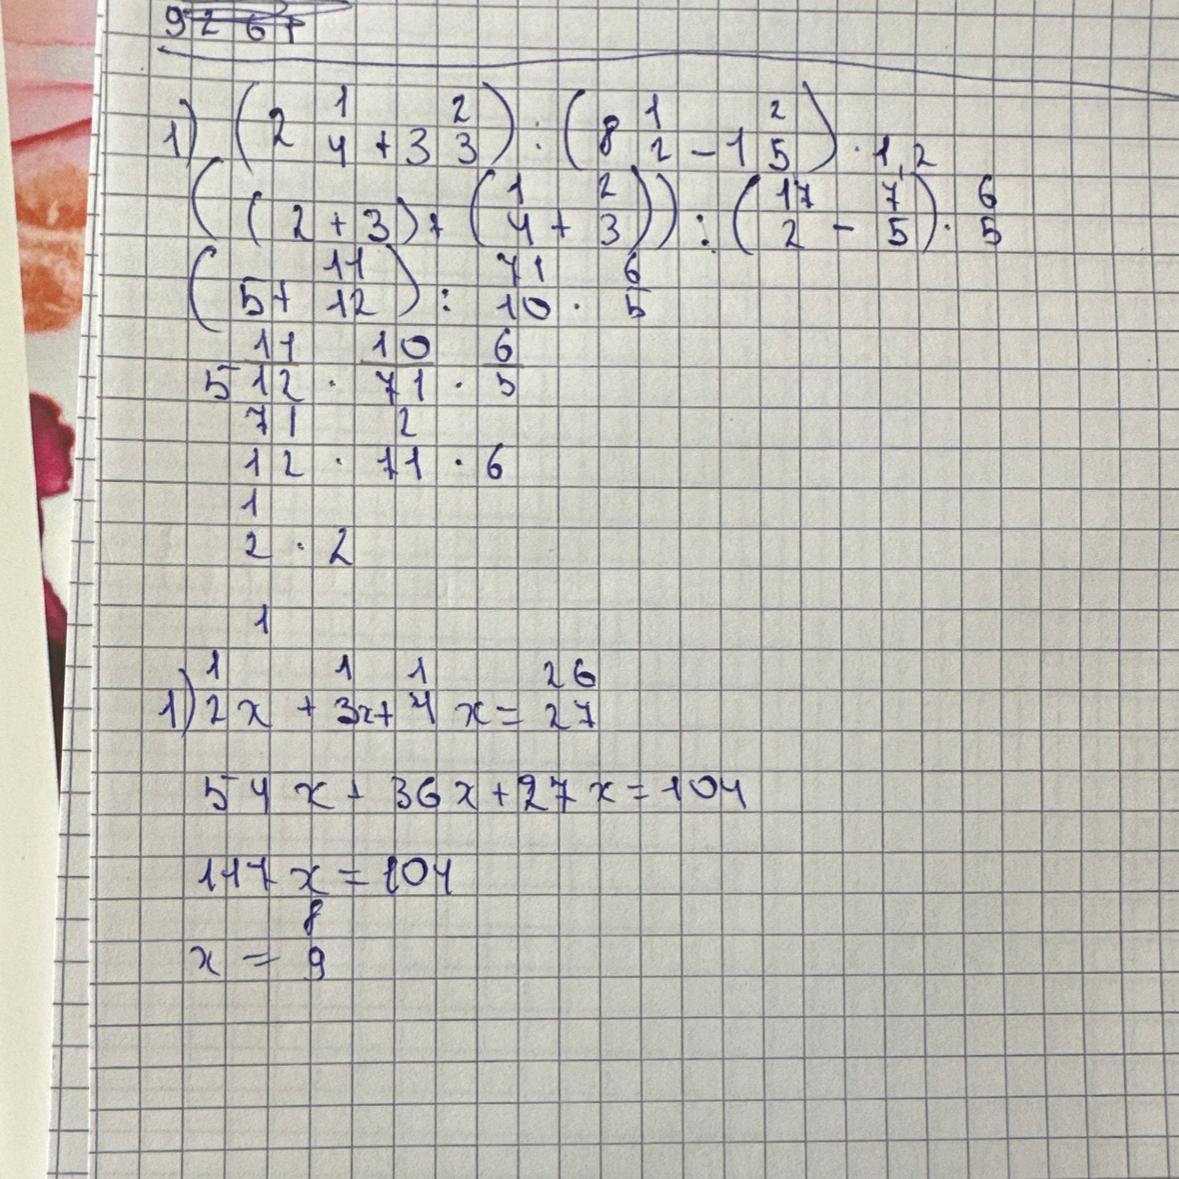 9261
1) (2 1/4 + 3 2/3) : (8 1/2 - 1 2/5) · 1,2
((2 + 3) + (1/4 + 2/3)) : (17/2 - 7/5) · 6/5
(5 + 11/12) : 71/10 · 6/5
5 11/12 · 10/71 · 6/5
71/12 · 2/71 · 6
1/2 · 2
1
1) 1/2 x + 1/3 x + 1/4 x = 26/27
54x + 36x + 27x = 104
117x = 104
x = 8/9